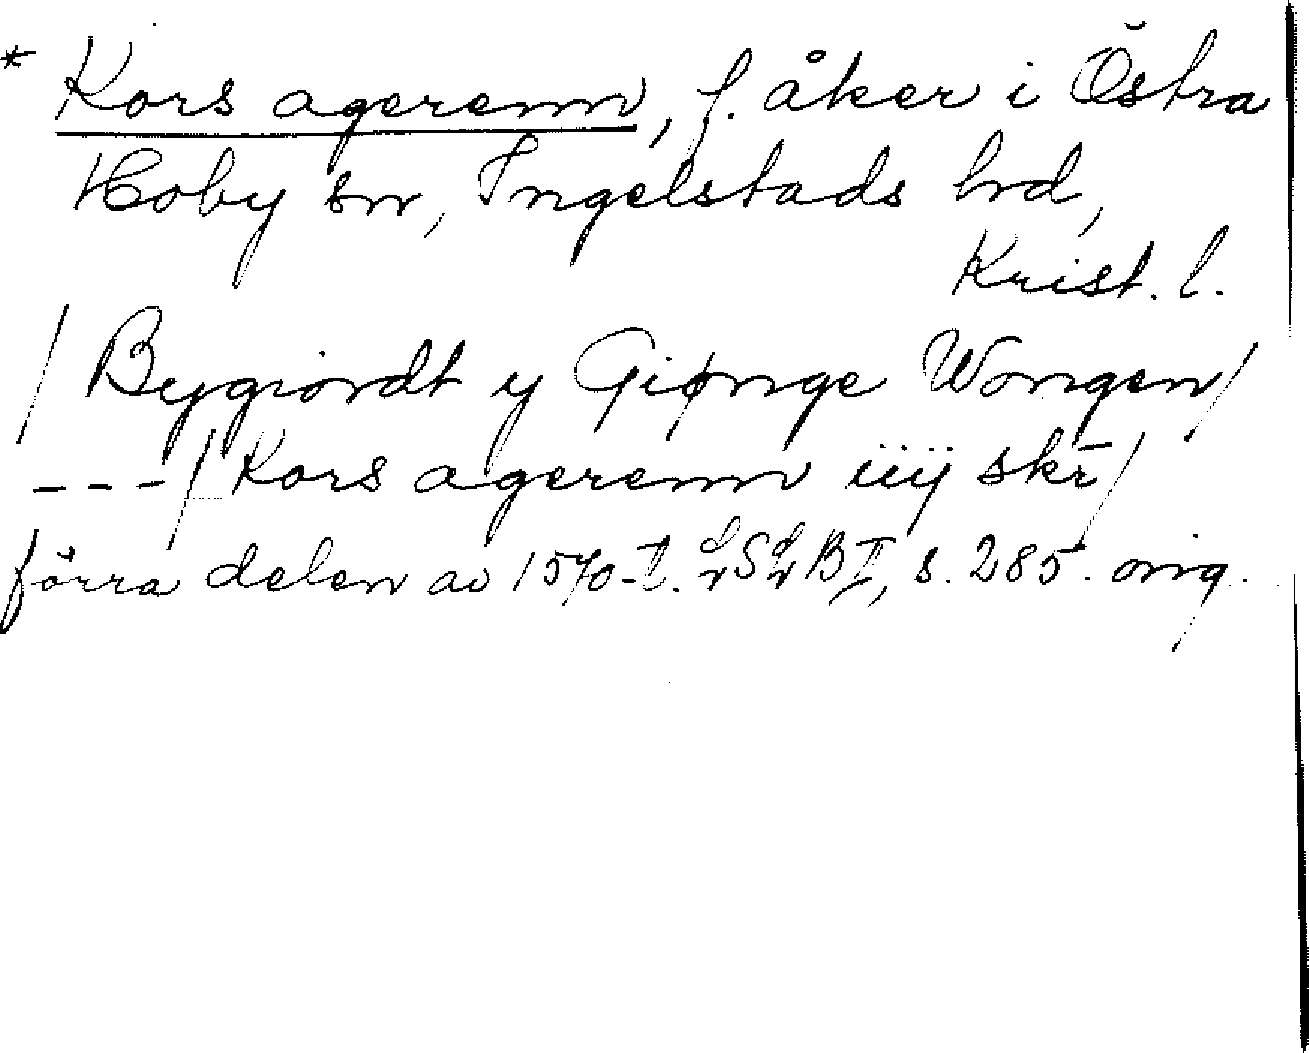 * Kors agerenn, f. åker i Östra
Hoby sn, Ingelstads hd,
Krist. l.
/ Bygiordt y Giønge Wongen /
--- / Kors agerenn iiij skr̄ /
förra delen av 1570-t. LSLB II, s. 285. orig.